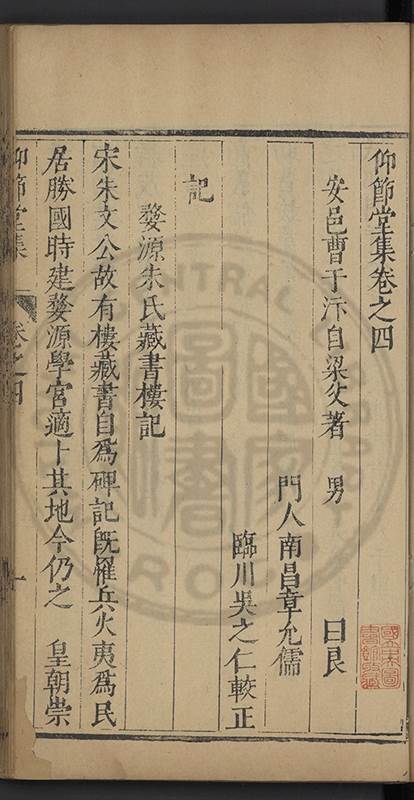 仰節堂集卷之四
安邑曹于汴自梁父著 男 曰良
門人南昌章允儒
臨川吳之仁較正
記
婺源朱氏藏書樓記
宋朱文公故有樓藏書自為碑記旣罹兵火夷為民
居勝國時建婺源學宮適卜其地今仍之 皇朝崇
仰節堂集 卷之四 一